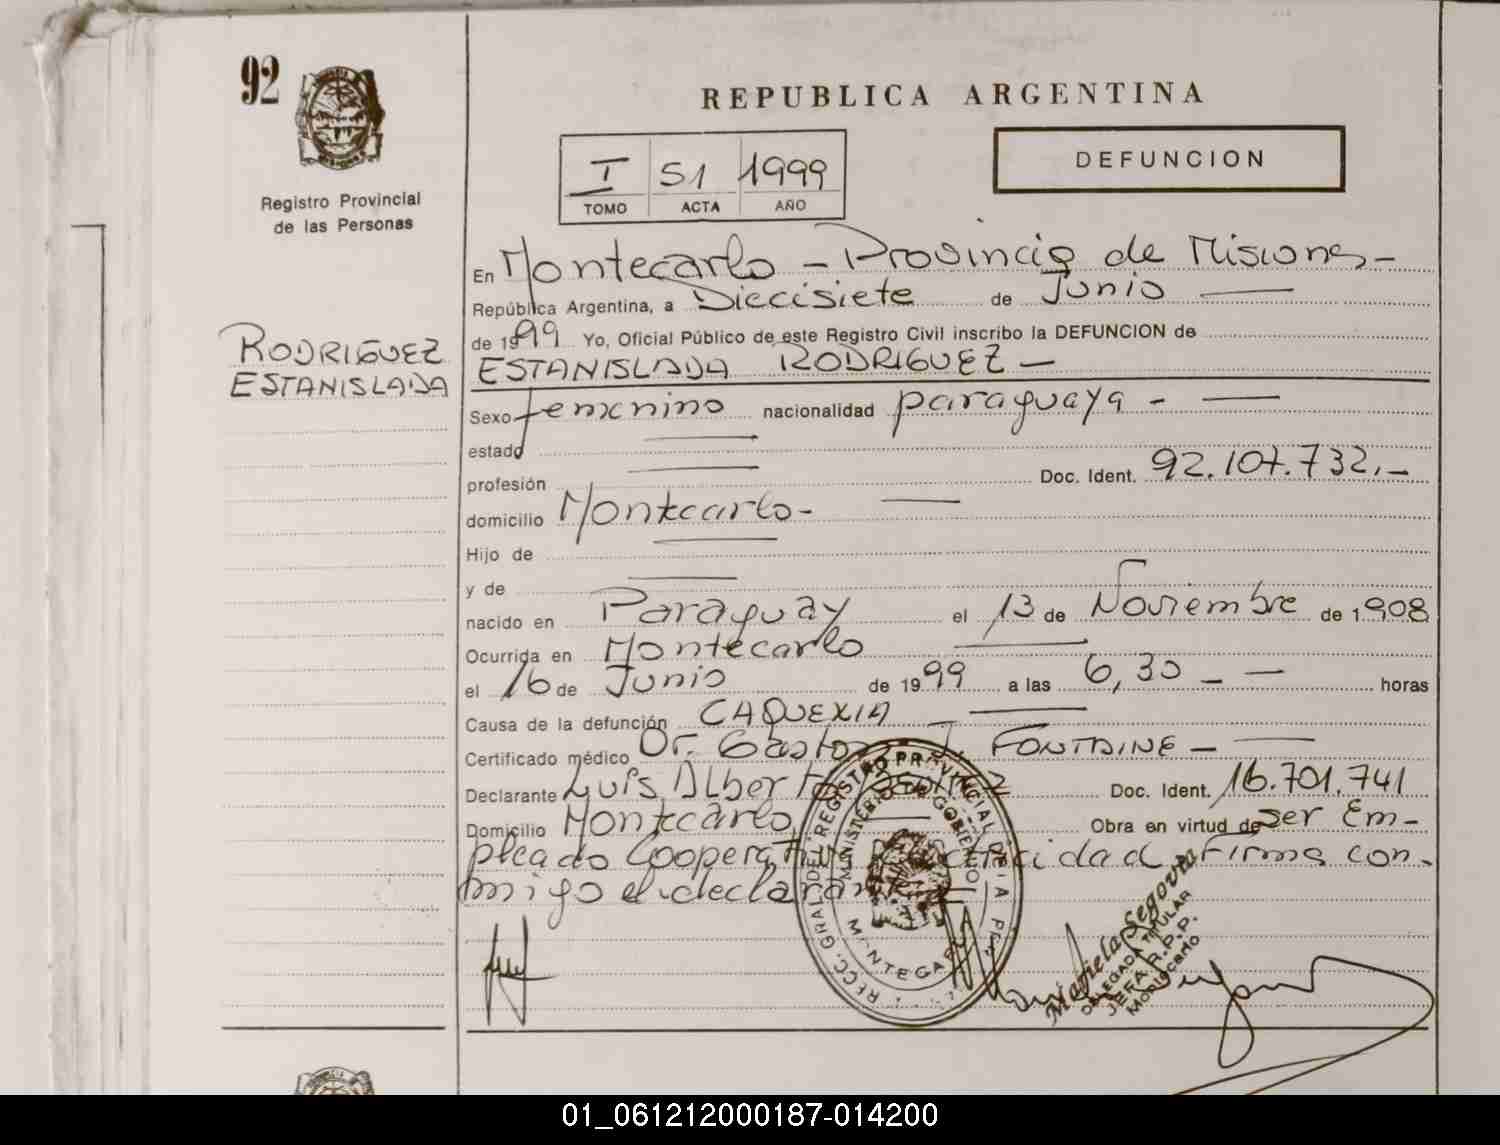 92
Registro Provincial
de las Personas
RODRIGUEZ
ESTANISLADA
REPUBLICA ARGENTINA
I 51 1999
TOMO ACTA AÑO
DEFUNCION
En Montecarlo - Provincia de Misiones -
República Argentina, a Diecisiete de Junio
de 1999 Yo, Oficial Público de este Registro Civil inscribo la DEFUNCION de
ESTANISLADA RODRIGUEZ -
Sexo femenino nacionalidad paraguaya -
estado
profesión Doc. Ident. 92.107.732.-
domicilio Montecarlo -
Hijo de
y de
nacido en Paraguay el 13 de Noviembre de 1908
Ocurrida en Montecarlo
el 16 de Junio de 1999 a las 6,30 - horas
Causa de la defunción CAQUEXIA -
Certificado médico Dr. Gaston J. FONTAINE -
Declarante Luis Alberto Doc. Ident. 16.701.741
Domicilio Montecarlo Obra en virtud de ser Em-
pleado Cooperativa Electricidad firma con.
migo el declarante
REGISTRO PROVINCIAL DE LA
MINISTERIO DE GOBIERNO
MONTECARLO
Mariela Segovia
DELEGADA TITULAR
JEFA R.P.P.
Montecarlo
01_061212000187-014200